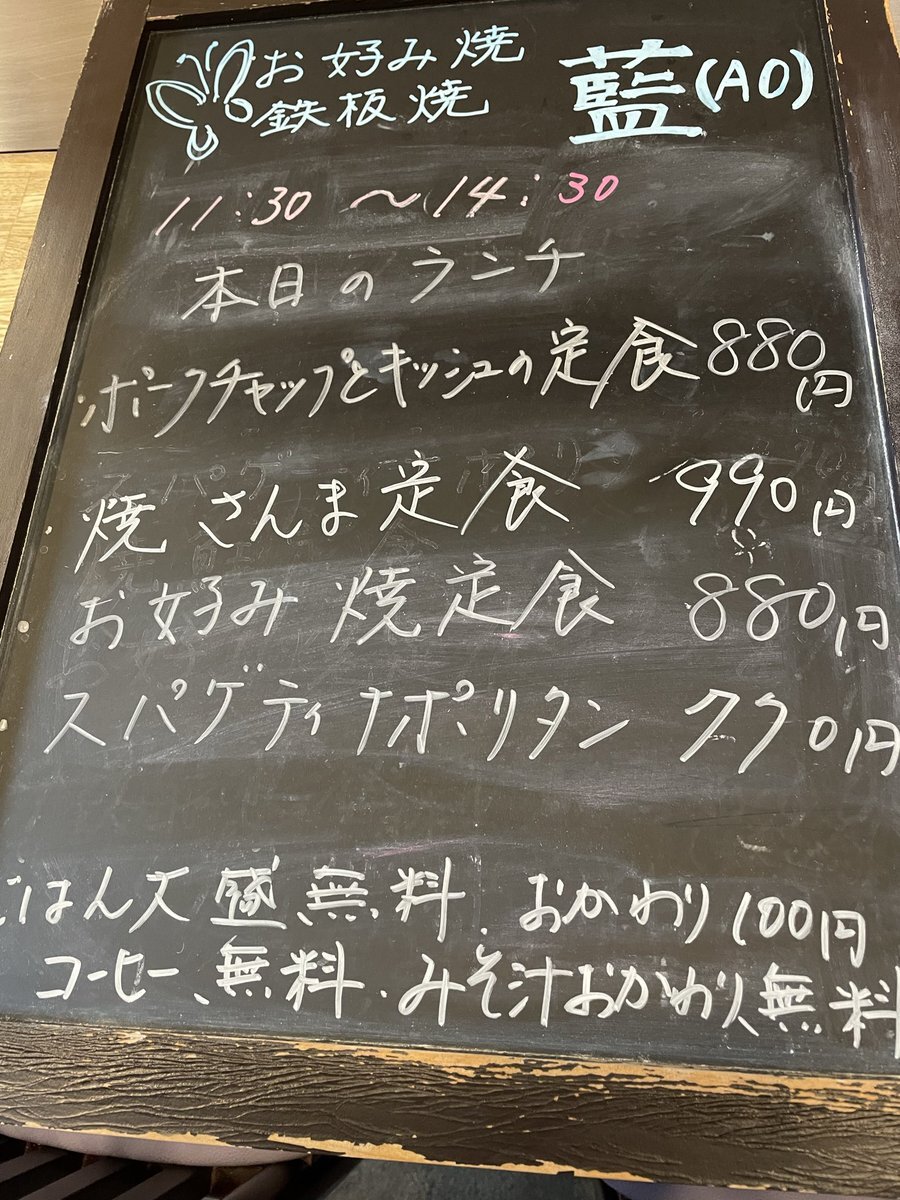 お好み焼
鉄板焼
藍(AO)
11:30 〜14:30
本日のランチ
ポークチャップとキッシュの定食 880円
焼さんま定食 990円
お好み焼定食 880円
スパゲティナポリタン 770円
ごはん大盛無料.おかわり100円
コーヒー、無料.みそ汁おかわり、無料